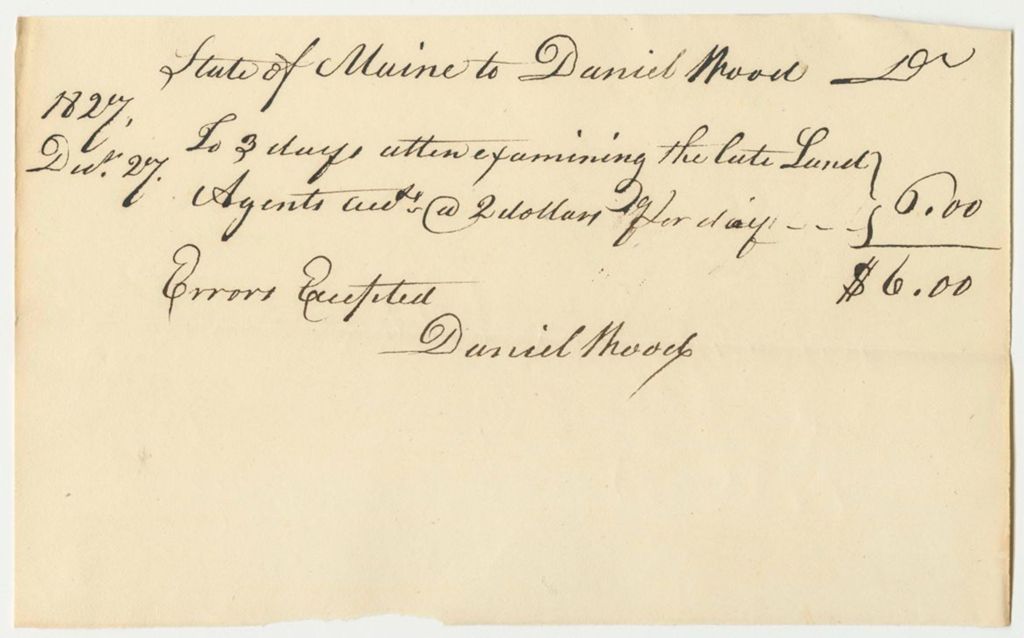 State of Maine to Daniel Wood Dr
1827,
Decr. 27. To 3 days atten examining the late Land
Agents accts. @ 2 dollars per day - - - 6.00
$ 6.00
Errors Excepted
Daniel Wood